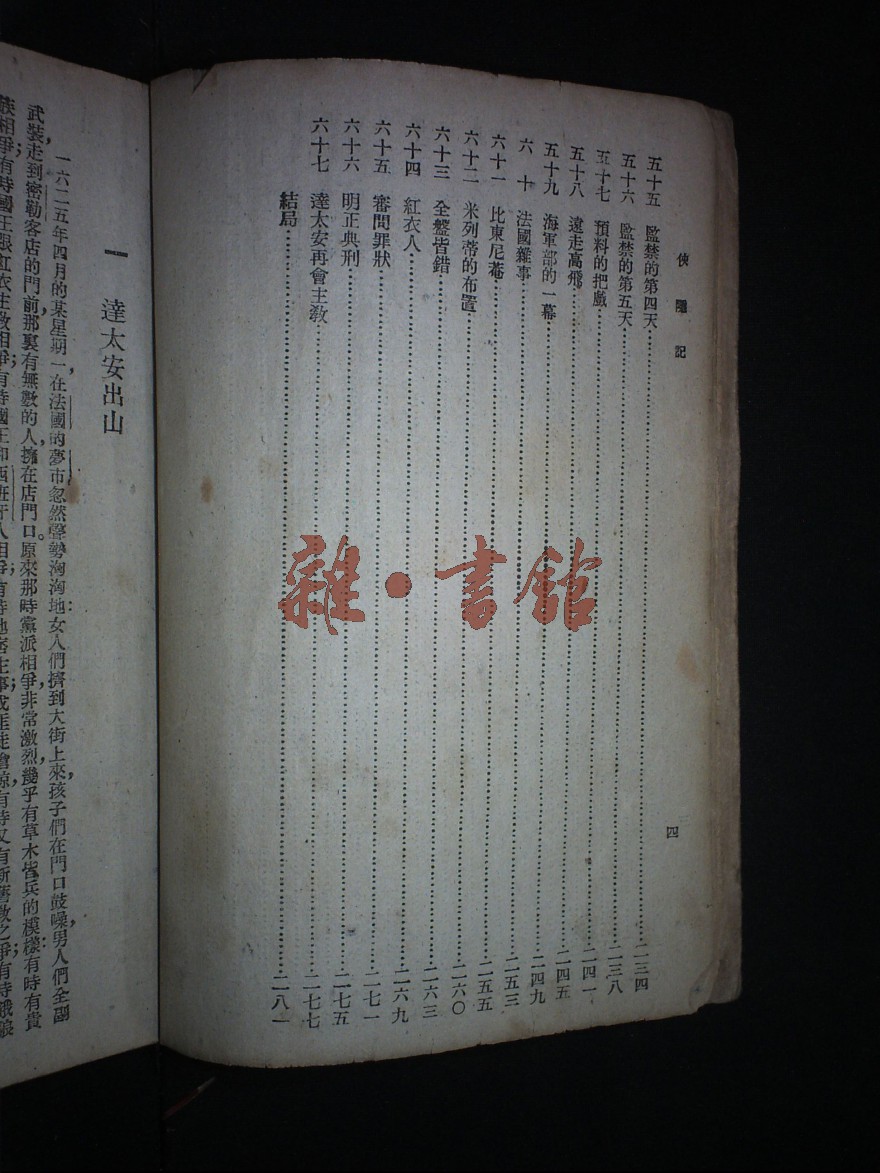 俠隱記
五十五 監禁的第四天……二三四
五十六 監禁的第五天……二三八
五十七 預料的把戲……二四一
五十八 遠走高飛……二四五
五十九 海軍部的一幕……二四九
六十 法國雜事……二五三
六十一 比東尼菴……二五五
六十二 米列蒂的布置……二六〇
六十三 全盤皆錯……二六三
六十四 紅衣人……二六九
六十五 審問罪狀……二七一
六十六 明正典刑……二七五
六十七 達太安再會主教……二七七
結局……二八一
四
一 達太安出山
一六二五年四月的某星期一，在法國的夢市忽然聲勢洶洶地：女人們擠到大街上來，孩子們在門口鼓噪，男人們全副
武裝，走到密勒客店的門前，那裏有無數的人，擁在店門口。原來那時黨派相爭，非常激烈，幾乎有草木皆兵的模樣：有時有貴
族相爭；有時國王跟紅衣主教相爭；有時國王和西班牙人相爭；
雜·書館